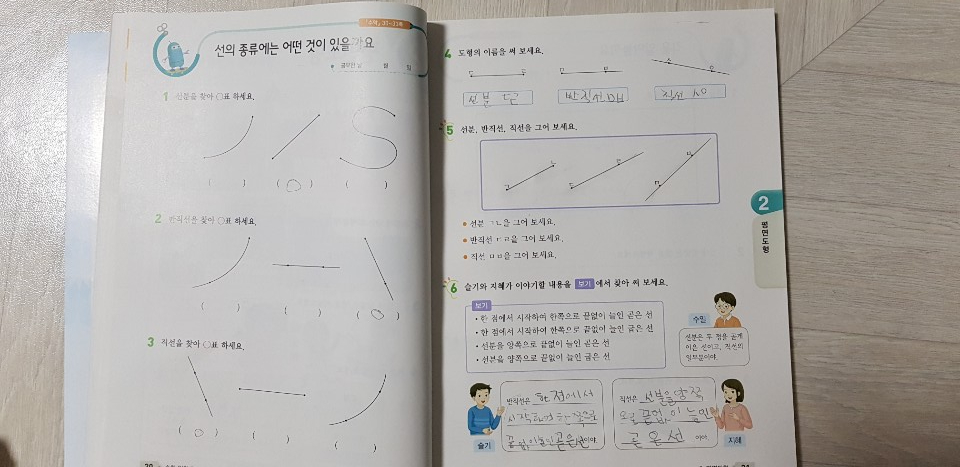 「수학」 31~33쪽
선의 종류에는 어떤 것이 있을까요
공부한 날 월 일
1 선분을 찾아 ○표 하세요.
( ) ( ○ ) ( )
2 반직선을 찾아 ○표 하세요.
( ) ( ) ( ○ )
3 직선을 찾아 ○표 하세요.
( ○ ) ( ) ( )
4 도형의 이름을 써 보세요.
선분 ㄷㄹ
반직선 ㅁㅂ
직선 ㅅㅇ
5 선분, 반직선, 직선을 그어 보세요.
ㄱ ㄴ ㄷ ㄹ ㅁ ㅂ
• 선분 ㄱㄴ을 그어 보세요.
• 반직선 ㄷㄹ을 그어 보세요.
• 직선 ㅁㅂ을 그어 보세요.
2
평면도형
6 슬기와 지혜가 이야기할 내용을 보기 에서 찾아 써 보세요.
보기
• 한 점에서 시작하여 한쪽으로 끝없이 늘인 곧은 선
• 한 점에서 시작하여 한쪽으로 끝없이 늘인 굽은 선
• 선분을 양쪽으로 끝없이 늘인 곧은 선
• 선분을 양쪽으로 끝없이 늘인 굽은 선
수일
선분은 두 점을 곧게
이은 선이고, 직선의
일부분이야.
반직선은 한 점에서
시작하여 한쪽으로
끝없이 늘인 곧은 선이야.
슬기
직선은 선분을 양쪽
으로 끝없이 늘인
곧은 선 이야
지혜